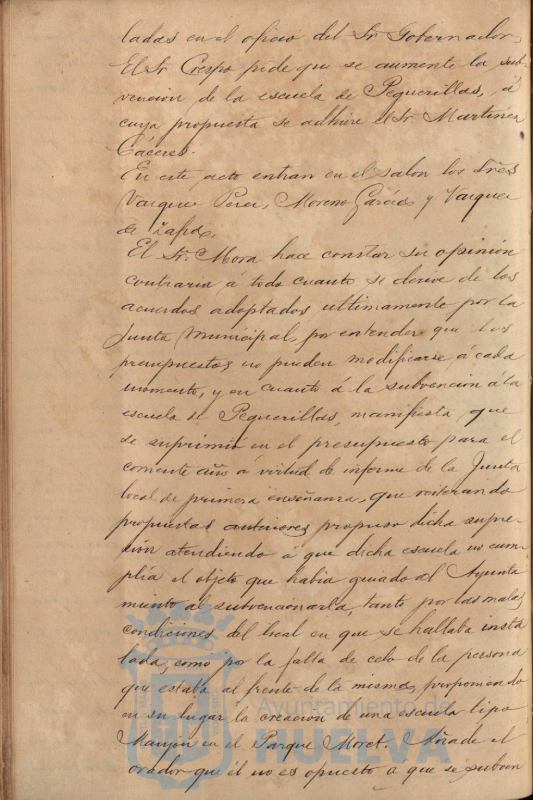 ladas en el oficio del Sr Gobernador,
El Sr Crespo pide que se aumente la sub-
vencion de la escuela de Peguerillas, á
cuya propuesta se adhiere el Sr Martinez
Cáceres.
En este acto entran en el salon los Sres
Vazquez Perez, Moreno García y Vazquez
de Zafra.
El Sr. Mora hace constar su opinión
contraria á todo cuanto se derive de los
acuerdos adoptados ultimamente por la
Junta Municipal, por entender que los
presupuestos no pueden modificarse á cada
momento, y en cuanto á la subvencion á la
escuela de Peguerillas, manifiesta, que
se suprimió en el presupuesto para el
corriente año á virtud de informe de la Junta
local de primera enseñanza, que reiterando
propuestas anteriores propuso dicha supre-
sión atendiendo á que dicha escuela no cum-
plia el objeto que habia guiado al Ayunta
miento al subvencionarla, tanto por las malas
condiciones del local en que se hallaba insta
lada, como por la falta de celo de la persona
que estaba al frente de la misma, proponiendo
en su lugar la creacion de una escuela tipo
Manjón en el Parque Moret. Añade el
orador que él no es opuesto a que se subven
Ayuntamiento de
HUELVA